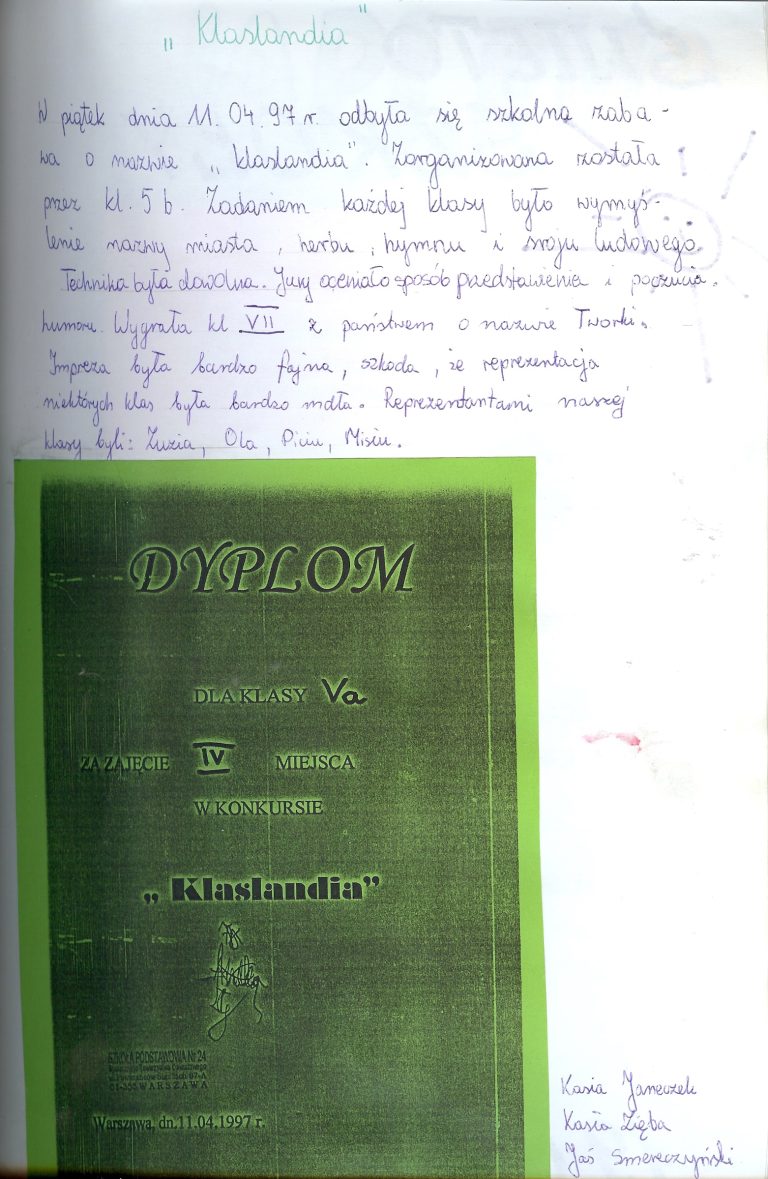 „Klaslandia"
W piątek dnia 11.04.97 r. odbyła się szkolna zaba-
wa o nazwie „Klaslandia". Zorganizowana została
przez kl. 5 b. Zadaniem każdej klasy było wymyś-
lenie nazwy miasta, herbu, hymnu i stroju ludowego.
Technika była dowolna. Jury oceniało sposób przedstawienia i poczucia
humoru. Wygrała kl VII z państwem o nazwie Tworki.
Impreza była bardzo fajna, szkoda, że reprezentacja
niektórych klas była bardzo mdła. Reprezentantami naszej
klasy byli: Zuzia, Ola, Piciu, Misiu.
DYPLOM
DLA KLASY Va
ZA ZAJĘCIE IV MIEJSCA
W KONKURSIE
„Klaslandia”
SZKOŁA PODSTAWOWA Nr 24
WARSZAWA
Warszawa, dn.11.04.1997 r.
Kasia Janeczek
Kasia Zięba
Jaś Smereczyński